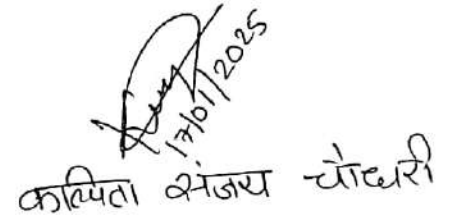 17/01/2025
कल्पिता संजय चौधरी